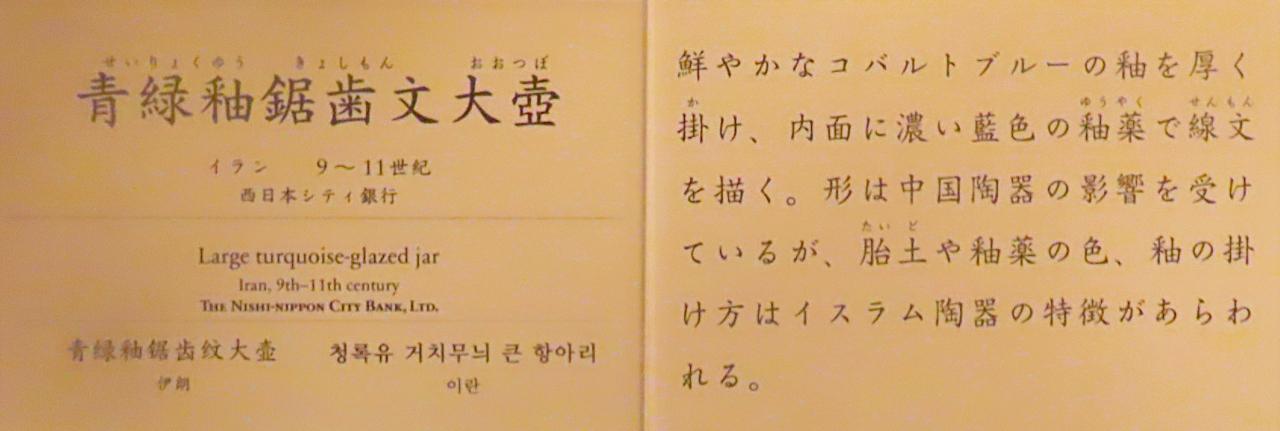 せいりょくゆう きょしもん おおつぼ
青緑釉鋸歯文大壺
イラン 9〜11世紀
西日本シティ銀行
Large turquoise-glazed jar
Iran, 9th–11th century
THE NISHI-NIPPON CITY BANK, LTD.
青緑釉鋸齿纹大壶 청록유 거치무늬 큰 항아리
伊朗 이란
鮮やかなコバルトブルーの釉を厚く
か ゆうやく せんもん
掛け、内面に濃い藍色の釉薬で線文
を描く。形は中国陶器の影響を受け
たいど
ているが、胎土や釉薬の色、釉の掛
け方はイスラム陶器の特徴があらわ
れる。